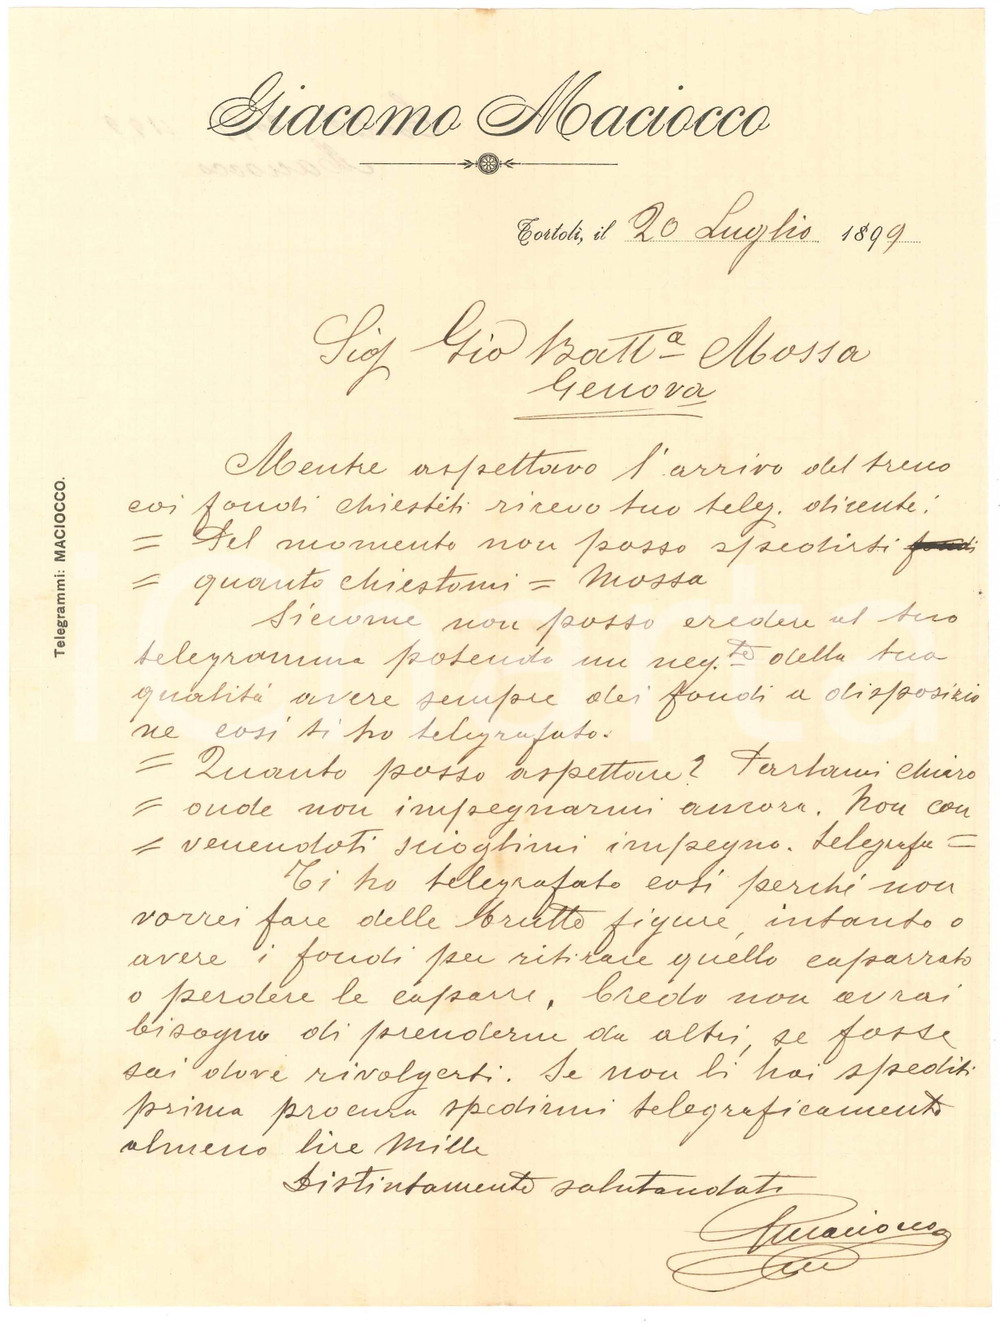 Giacomo Maciocco
Tortolì, il 20 Luglio 1899
Sig Gio Batta Mossa
Genova
Telegrammi: MACIOCCO.
Mentre aspettavo l'arrivo del treno
coi fondi chiestiti ricevo tuo teleg. dicente:
= Pel momento non posso spedirti fondi
= quanto chiestomi = Mossa
Siccome non posso credere al tuo
telegramma potendo un neg.te della tua
qualità avere sempre dei fondi a disposizio
ne così ti ho telegrafato.
= Quanto posso aspettare? Parlami chiaro
= onde non impegnarmi ancora. Non con
= venendoti scioglimi impegno. telegrafa =
Ti ho telegrafato così perché non
vorrei fare delle brutte figure, intanto o
avere i fondi per ritirare quello caparrato
o perdere le caparre. Credo non avrai
bisogno di prenderne da altri, se fosse
sai dove rivolgerti. Se non li hai spediti
prima procura spedirmi telegraficamente
almeno lire Mille
Distintamente salutandoti
GMaciocco
iCharta